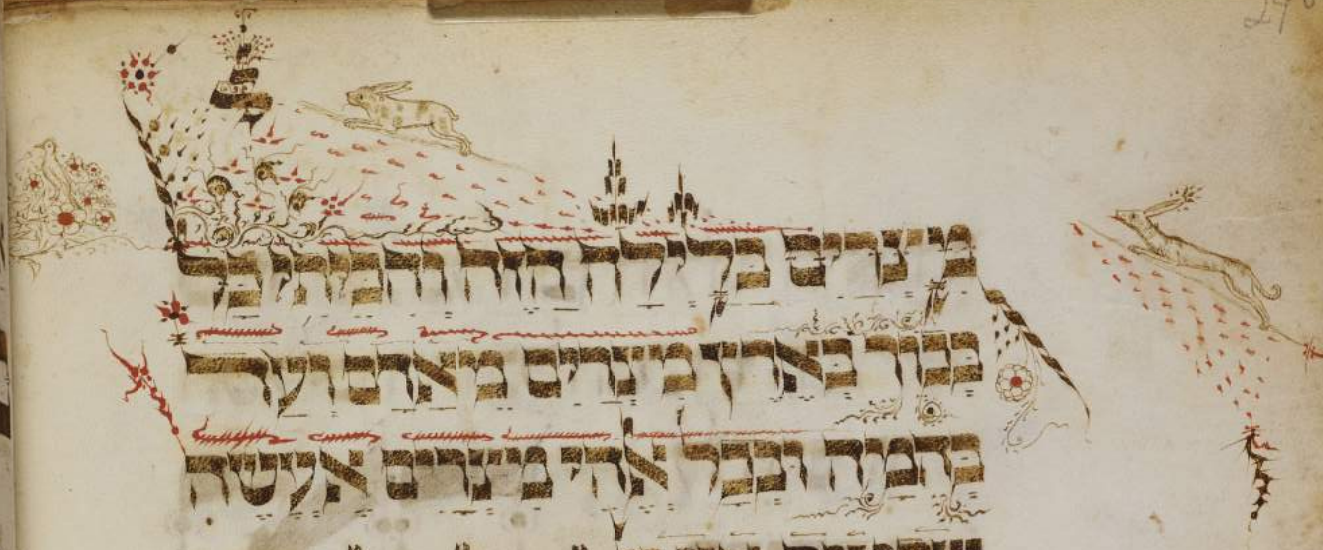 מצרים בלילה הזה והכיתי כל
בכור בארץ מצרים מאדם ועד
בהמה ובכל אלהי מצרים אעשה